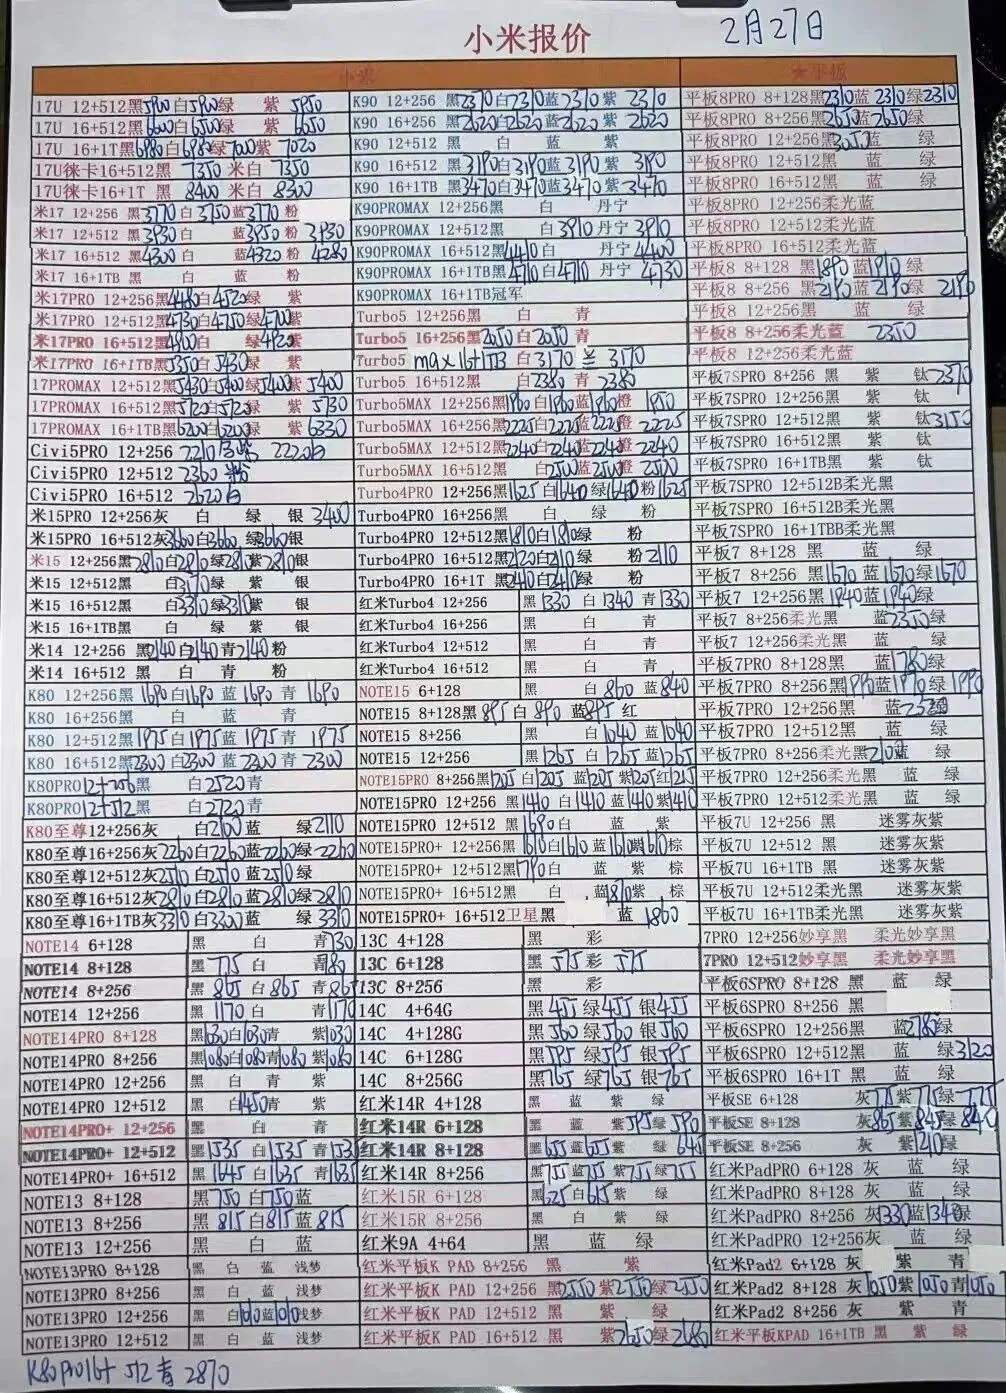 小米报价
2月27日
小米
★平板
17U 12+512黑5900白5900绿 紫5950
17U 16+512黑6600白6500绿 紫6650
17U 16+1T黑6980白6980绿7000紫7020
17U徕卡16+512黑 7350 米白 7350
17U徕卡16+1T 黑 8400 米白 8300
米17 12+256 黑3770白3750蓝3770粉
米17 12+512 黑3930白 蓝3950粉 3930
米17 16+512黑4300白 蓝4320粉 4280
米17 16+1TB黑 白 蓝 粉
米17PRO 12+256黑4480白4520绿 紫
米17PRO 12+512黑4730白4750绿4700紫
米17PRO 16+512黑4900白 绿4920紫
米17PRO 16+1TB黑5350白5430绿 紫
17PROMAX 12+512黑5430白5400绿5400紫5400
17PROMAX 16+512黑5720白5720绿 紫5730
17PROMAX 16+1TB黑6200白6200绿 紫6330
Civi5PRO 12+256 2210 2220白
Civi5PRO 12+512 2360粉
Civi5PRO 16+512 2620白
米15PRO 12+256灰 白 绿 银3400
米15PRO 16+512灰3660白3660绿3660银
米15 12+256黑2810白2810绿2810紫2810银
米15 12+512黑 白3170绿 紫 银
米15 16+512黑 白3310绿3310紫 银
米15 16+1TB黑 白 绿 紫 银
米14 12+256 黑2140白2140青2140粉
米14 16+512 黑 白 青 粉
K80 12+256黑1690白1690蓝1690青1690
K80 16+256黑 白 蓝 青
K80 12+512黑1975白1975蓝1975青1975
K80 16+512黑2300白2300蓝2300青2300
K80PRO12+256黑 白2520青
K80PRO12+512黑 白2720青
K80至尊12+256灰 白2100蓝 绿2110
K80至尊16+256灰2260白2260蓝2260绿2260
K80至尊12+512灰2510白2510蓝2510绿
K80至尊16+512灰2810白2810蓝2810绿2810
K80至尊16+1TB灰3310白3300蓝 绿3310
NOTE14 6+128 黑 白 青730
NOTE14 8+128 黑775白 青780
NOTE14 8+256 黑865白865青865
NOTE14 12+256 黑1170白 青1170
NOTE14PRO 8+128 黑1030白1030青 紫1030
NOTE14PRO 8+256 黑1080白1080青1080紫1080
NOTE14PRO 12+256 黑 白 青 紫
NOTE14PRO 12+512 黑 白1450青 紫
NOTE14PRO+ 12+256 黑 白 青
NOTE14PRO+ 12+512 黑1535白1535青1535
NOTE14PRO+ 16+512 黑1645白1635青1635
NOTE13 8+128 黑750白750蓝
NOTE13 8+256 黑815白815蓝815
NOTE13 12+256 黑 白 蓝
NOTE13PRO 8+128 黑 白 蓝 浅梦
NOTE13PRO 8+256 黑 白 蓝 浅梦
NOTE13PRO 12+256 黑 白1010蓝1010浅梦
NOTE13PRO 12+512 黑 白 蓝 浅梦
K90 12+256 黑2310白2310蓝2310紫2310
K90 16+256 黑2620白2620蓝2620紫2620
K90 12+512 黑 白 蓝 紫
K90 16+512 黑3190白3190蓝3190紫3190
K90 16+1TB 黑3470白3470蓝3470紫3470
K90PROMAX 12+256黑 白 丹宁
K90PROMAX 12+512黑 白3910丹宁3910
K90PROMAX 16+512黑4410白4410丹宁4400
K90PROMAX 16+1TB黑4710白4710丹宁4730
K90PROMAX 16+1TB冠军
Turbo5 12+256黑 白 青
Turbo5 16+256黑2050白2050青
Turbo5 max 16+1TB 白3170 3170
Turbo5 16+512黑 白2380青2380
Turbo5MAX 12+256黑1960白1960蓝1960橙1950
Turbo5MAX 16+256黑2225白2225蓝2225橙2225
Turbo5MAX 12+512黑2240白2240蓝2240橙2240
Turbo5MAX 16+512黑 白2500蓝2500橙2500
Turbo4PRO 12+256黑1625白1640绿1640粉1625
Turbo4PRO 16+256黑 白 绿 粉
Turbo4PRO 12+512黑1810白1810绿 粉
Turbo4PRO 16+512黑2120白2110绿 粉2110
Turbo4PRO 16+1T 黑2410白2410绿 粉
红米Turbo4 12+256 黑1330白1340青1330
红米Turbo4 16+256 黑 白 青
红米Turbo4 12+512 黑 白 青
红米Turbo4 16+512 黑 白 青
NOTE15 6+128 黑 白860蓝840
NOTE15 8+128黑895白890蓝895红
NOTE15 8+256 黑 白1040蓝1040
NOTE15 12+256 黑1265白1265蓝1265
NOTE15PRO 8+256黑1205白1205蓝1205紫1205红1215
NOTE15PRO 12+256 黑1410白1410蓝1410紫1410
NOTE15PRO 12+512 黑1690白 蓝 紫
NOTE15PRO+ 12+256黑1610白1610蓝1610紫1610棕
NOTE15PRO+ 12+512黑1790白 蓝 紫 棕
NOTE15PRO+ 16+512黑 白 蓝1870紫 棕
NOTE15PRO+ 16+512卫星黑 蓝 1860
13C 4+128 黑 彩
13C 6+128 黑575彩575
13C 8+256 黑 彩
14C 4+64G 黑455绿455银455
14C 4+128G 黑560绿560银560
14C 6+128G 黑595绿595银595
14C 8+256G 黑765绿765银765
红米14R 4+128 黑 蓝 紫 绿
红米14R 6+128 黑 蓝 紫595绿590
红米14R 8+128 黑655蓝655紫 绿640
红米14R 8+256 黑755蓝755紫755绿755
红米15R 6+128 黑625白615紫 绿
红米15R 8+256 黑 白 紫 绿
红米9A 4+64 黑 蓝 绿
红米平板K PAD 8+256 黑 紫
红米平板K PAD 12+256 黑2550紫2550绿2550
红米平板K PAD 12+512 黑 紫 绿
红米平板K PAD 16+512 黑 紫2650绿2680
平板8PRO 8+128黑2310蓝2310绿2310
平板8PRO 8+256黑2650蓝2650绿
平板8PRO 12+256黑3055蓝 绿
平板8PRO 12+512黑 蓝 绿
平板8PRO 16+512黑 蓝 绿
平板8PRO 12+256柔光蓝
平板8PRO 12+512柔光蓝
平板8PRO 16+512柔光蓝
平板8 8+128 黑1890蓝1910绿
平板8 8+256 黑2190蓝2190绿2190
平板8 12+256黑 蓝 绿
平板8 8+256柔光蓝 2350
平板8 12+256柔光蓝
平板7SPRO 8+256 黑 紫 钛2370
平板7SPRO 12+256黑 紫 钛
平板7SPRO 12+512黑 紫 钛3150
平板7SPRO 16+512黑 紫 钛
平板7SPRO 16+1TB黑 紫 钛
平板7SPRO 12+512B柔光黑
平板7SPRO 16+512B柔光黑
平板7SPRO 16+1TBB柔光黑
平板7 8+128 黑 蓝 绿
平板7 8+256 黑1670蓝1670绿1670
平板7 12+256黑1940蓝1940绿
平板7 8+256柔光黑 蓝2350绿
平板7 12+256柔光黑 蓝 绿
平板7PRO 8+128黑 蓝1780绿
平板7PRO 8+256黑1990蓝1990绿1990
平板7PRO 12+256黑 蓝 绿
平板7PRO 12+512黑 蓝 绿
平板7PRO 8+256柔光黑210蓝 绿
平板7PRO 12+256柔光黑 蓝 绿
平板7PRO 12+512柔光黑 蓝 绿
平板7U 12+256 黑 迷雾灰紫
平板7U 12+512 黑 迷雾灰紫
平板7U 16+1TB 黑 迷雾灰紫
平板7U 12+512柔光黑 迷雾灰紫
平板7U 16+1TB柔光黑 迷雾灰紫
7PRO 12+256妙享黑 柔光妙享黑
7PRO 12+512妙享黑 柔光妙享黑
平板6SPRO 8+128 黑 蓝 绿
平板6SPRO 8+256 黑
平板6SPRO 12+256黑 蓝2780绿
平板6SPRO 12+512黑 蓝 绿3120
平板6SPRO 16+1T 黑 蓝 绿
平板SE 6+128 灰775紫775绿775
平板SE 8+128 灰865紫845绿840
平板SE 8+256 灰 紫1210绿
红米PadPRO 6+128灰 蓝 绿
红米PadPRO 8+128 灰 蓝 绿
红米PadPRO 8+256 灰1330蓝1340绿
红米PadPRO 12+256灰 蓝 绿
红米Pad2 6+128 灰 紫 青
红米Pad2 8+128 灰1050紫1050青1050
红米Pad2 8+256 灰 紫 青
红米平板KPAD 16+1TB 黑 紫 绿
K80pro16+ 512 青 2870